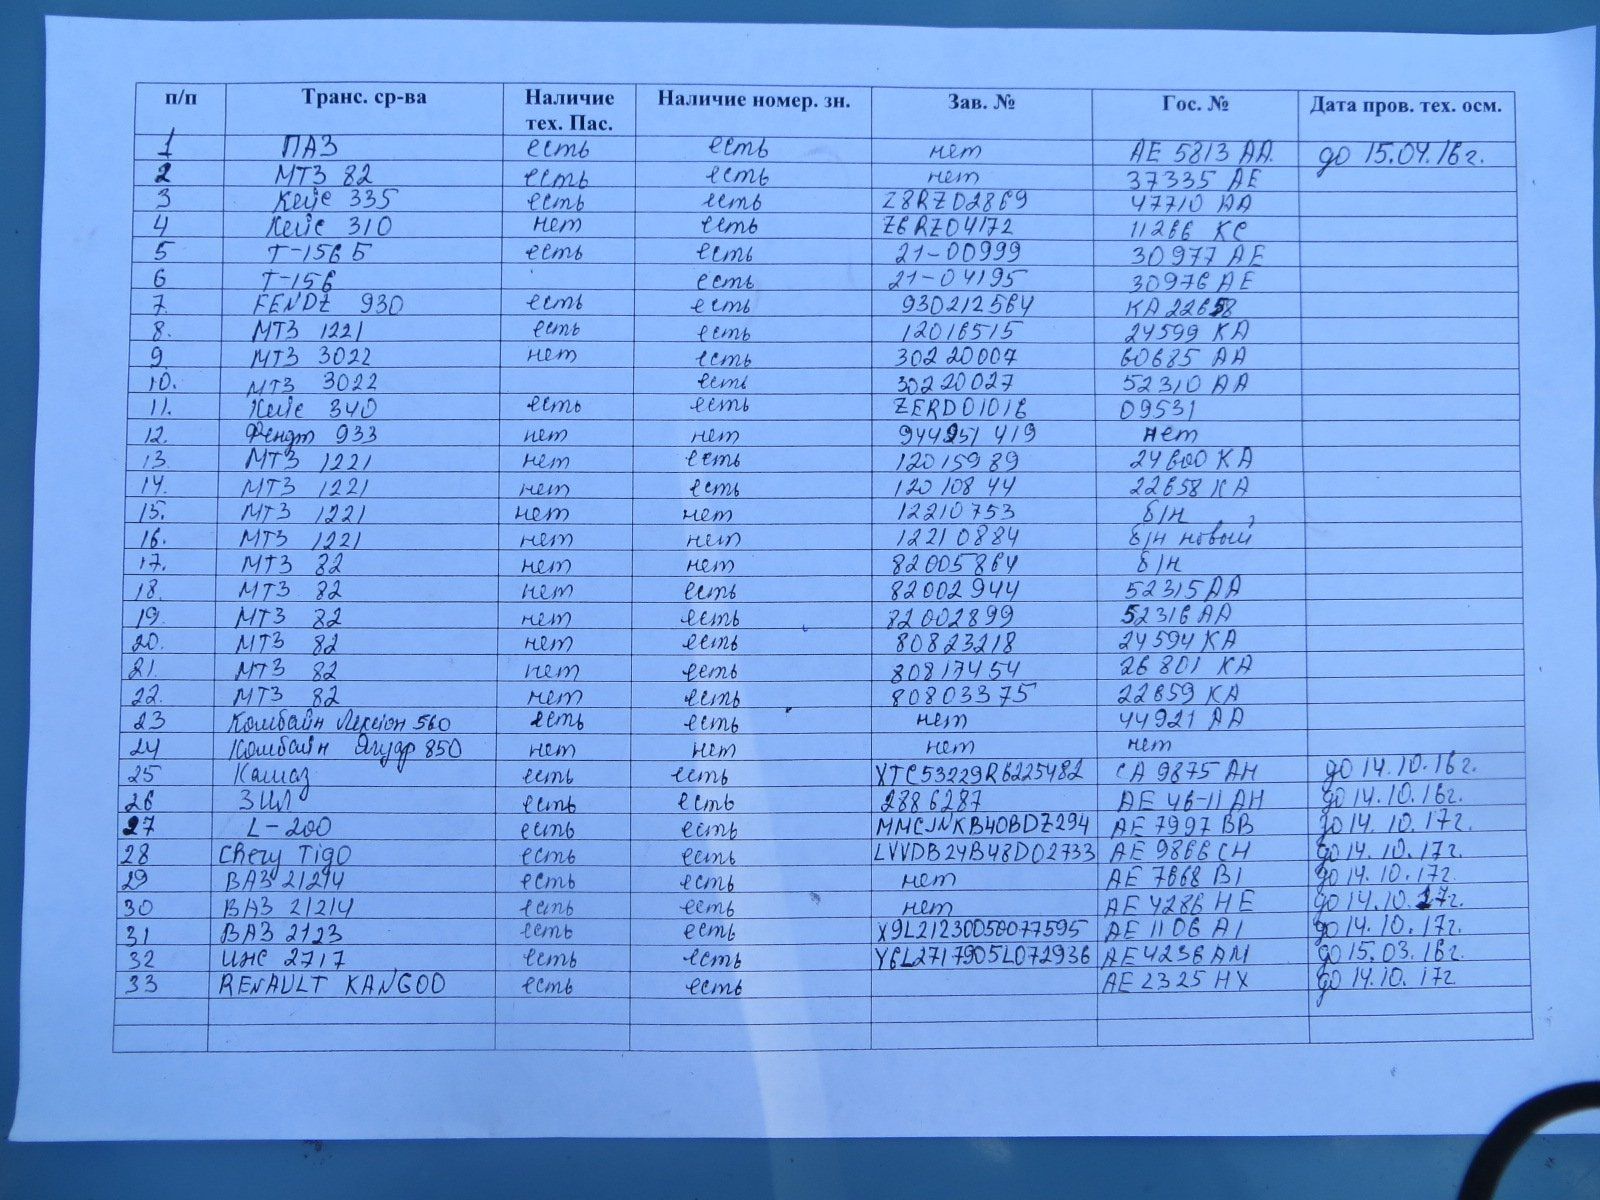 п/п Транс. ср-ва Наличие тех. Пас. Наличие номер. зн. Зав. № Гос. № Дата пров. тех. осм.
1 ПАЗ есть есть нет АЕ 5813 АА до 15.04.16г.
2 МТЗ 82 есть есть нет 37335 АЕ
3 Кейс 335 есть есть Z8RZ02869 47710 АА
4 Кейс 310 нет есть Z6RZ04172 11266 КС
5 Т-156 Б есть есть 21-00999 30977 АЕ
6 Т-156 есть 21-04195 30976 АЕ
7. FENDZ 930 есть есть 930212564 КА 22658
8. МТЗ 1221 есть есть 12016515 24599 КА
9. МТЗ 3022 нет есть 30220007 60685 АА
10. МТЗ 3022 есть 30220027 52310 АА
11. Кейс 340 есть есть ZERD01016 09531
12. Фендт 933 нет нет 944251 419 нет
13. МТЗ 1221 нет есть 12015989 24600 КА
14. МТЗ 1221 нет есть 12010844 22658 КА
15. МТЗ 1221 нет нет 12210753 б/н
16. МТЗ 1221 нет нет 12210884 б/н новый
17. МТЗ 82 нет нет 82005864 б/н
18. МТЗ 82 нет есть 82002944 52315 АА
19. МТЗ 82 нет есть 82002899 52316 АА
20. МТЗ 82 нет есть 80823218 24594 КА
21. МТЗ 82 нет есть 80817454 26801 КА
22. МТЗ 82 нет есть 80803375 22659 КА
23 Комбайн Лексіон 560 есть есть нет 44921 АА
24 Комбайн Ягуар 850 нет нет нет нет
25 Камаз есть есть XTC53229R6225482 СА 9875 АН до 14.10.16г.
26 ЗИЛ есть есть 2886287 АЕ 46-11 АН до 14.10.16г.
27 L-200 есть есть MMCJNKB40BDZ294 АЕ 7997 ВВ до 14.10.17г.
28 Chery Tigo есть есть LVVDB24B48D02733 АЕ 9866 СН до 14.10.17г.
29 ВАЗ 21214 есть есть нет АЕ 7668 ВІ до 14.10.17г.
30 ВАЗ 21214 есть есть нет АЕ 4286 НЕ до 14.10.17г.
31 ВАЗ 2123 есть есть X9L21230050077595 АЕ 1106 АІ до 14.10.17г.
32 ИЖ 2717 есть есть Y6L2717905L072936 АЕ 4236 АМ до 15.03.16г.
33 RENAULT KANGOO есть есть АЕ 2325 НХ до 14.10.17г